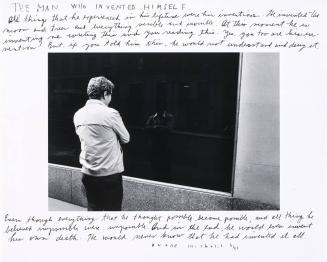 THE MAN WHO INVENTED HIMSELF
All things that he experienced in his lifetime were his inventions. He invented the
moon and trees and everything visible and invisible. At this moment he is
inventing me writing this and you reading this. Yes, you too are his in-
vention! But if you told him this, he would not understand and deny it.
Even though everything that he thought possible became possible, and all things he
believed impossible were impossible. And in the end, he would even invent
his own death. He would never know that he had invented it all.